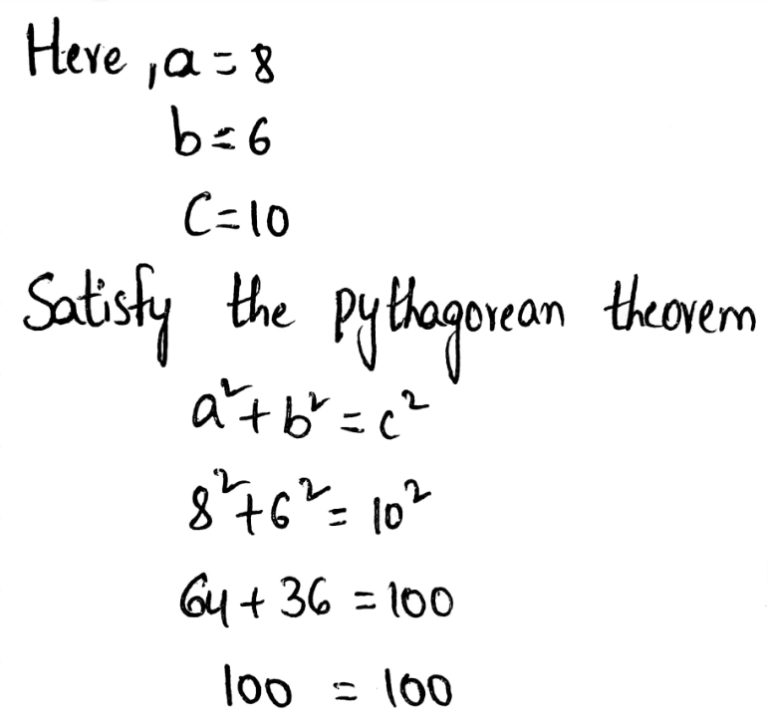 Here, a = 8
b = 6
C = 10
Satisfy the pythagorean theorem
a² + b² = c²
8² + 6² = 10²
64 + 36 = 100
100 = 100